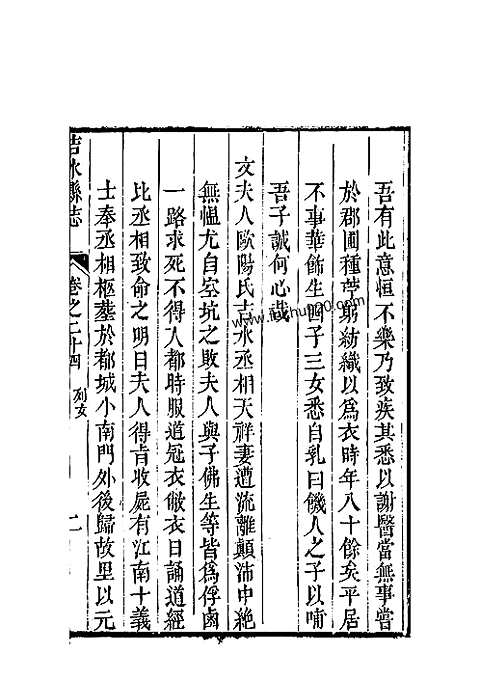 吾有此意恒不樂乃致疾其悉以謝醫當無事嘗
於郡圃種苧躬紡織以爲衣時年八十餘矣平居
不事華飾生四子三女悉自乳曰饑人之子以哺
吾子誠何心哉
文夫人歐陽氏吉水丞相天祥妻遭流離顛沛中絶
無慍尤自空坑之敗夫人與子佛生等皆爲俘鹵
一路求死不得入都時服道冠衣敝衣日誦道經
比丞相致命之明日夫人得旨收屍有江南十義
士奉丞相柩塟於都城小南門外後歸故里以元
吉水縣志
卷之二十四
列女
二